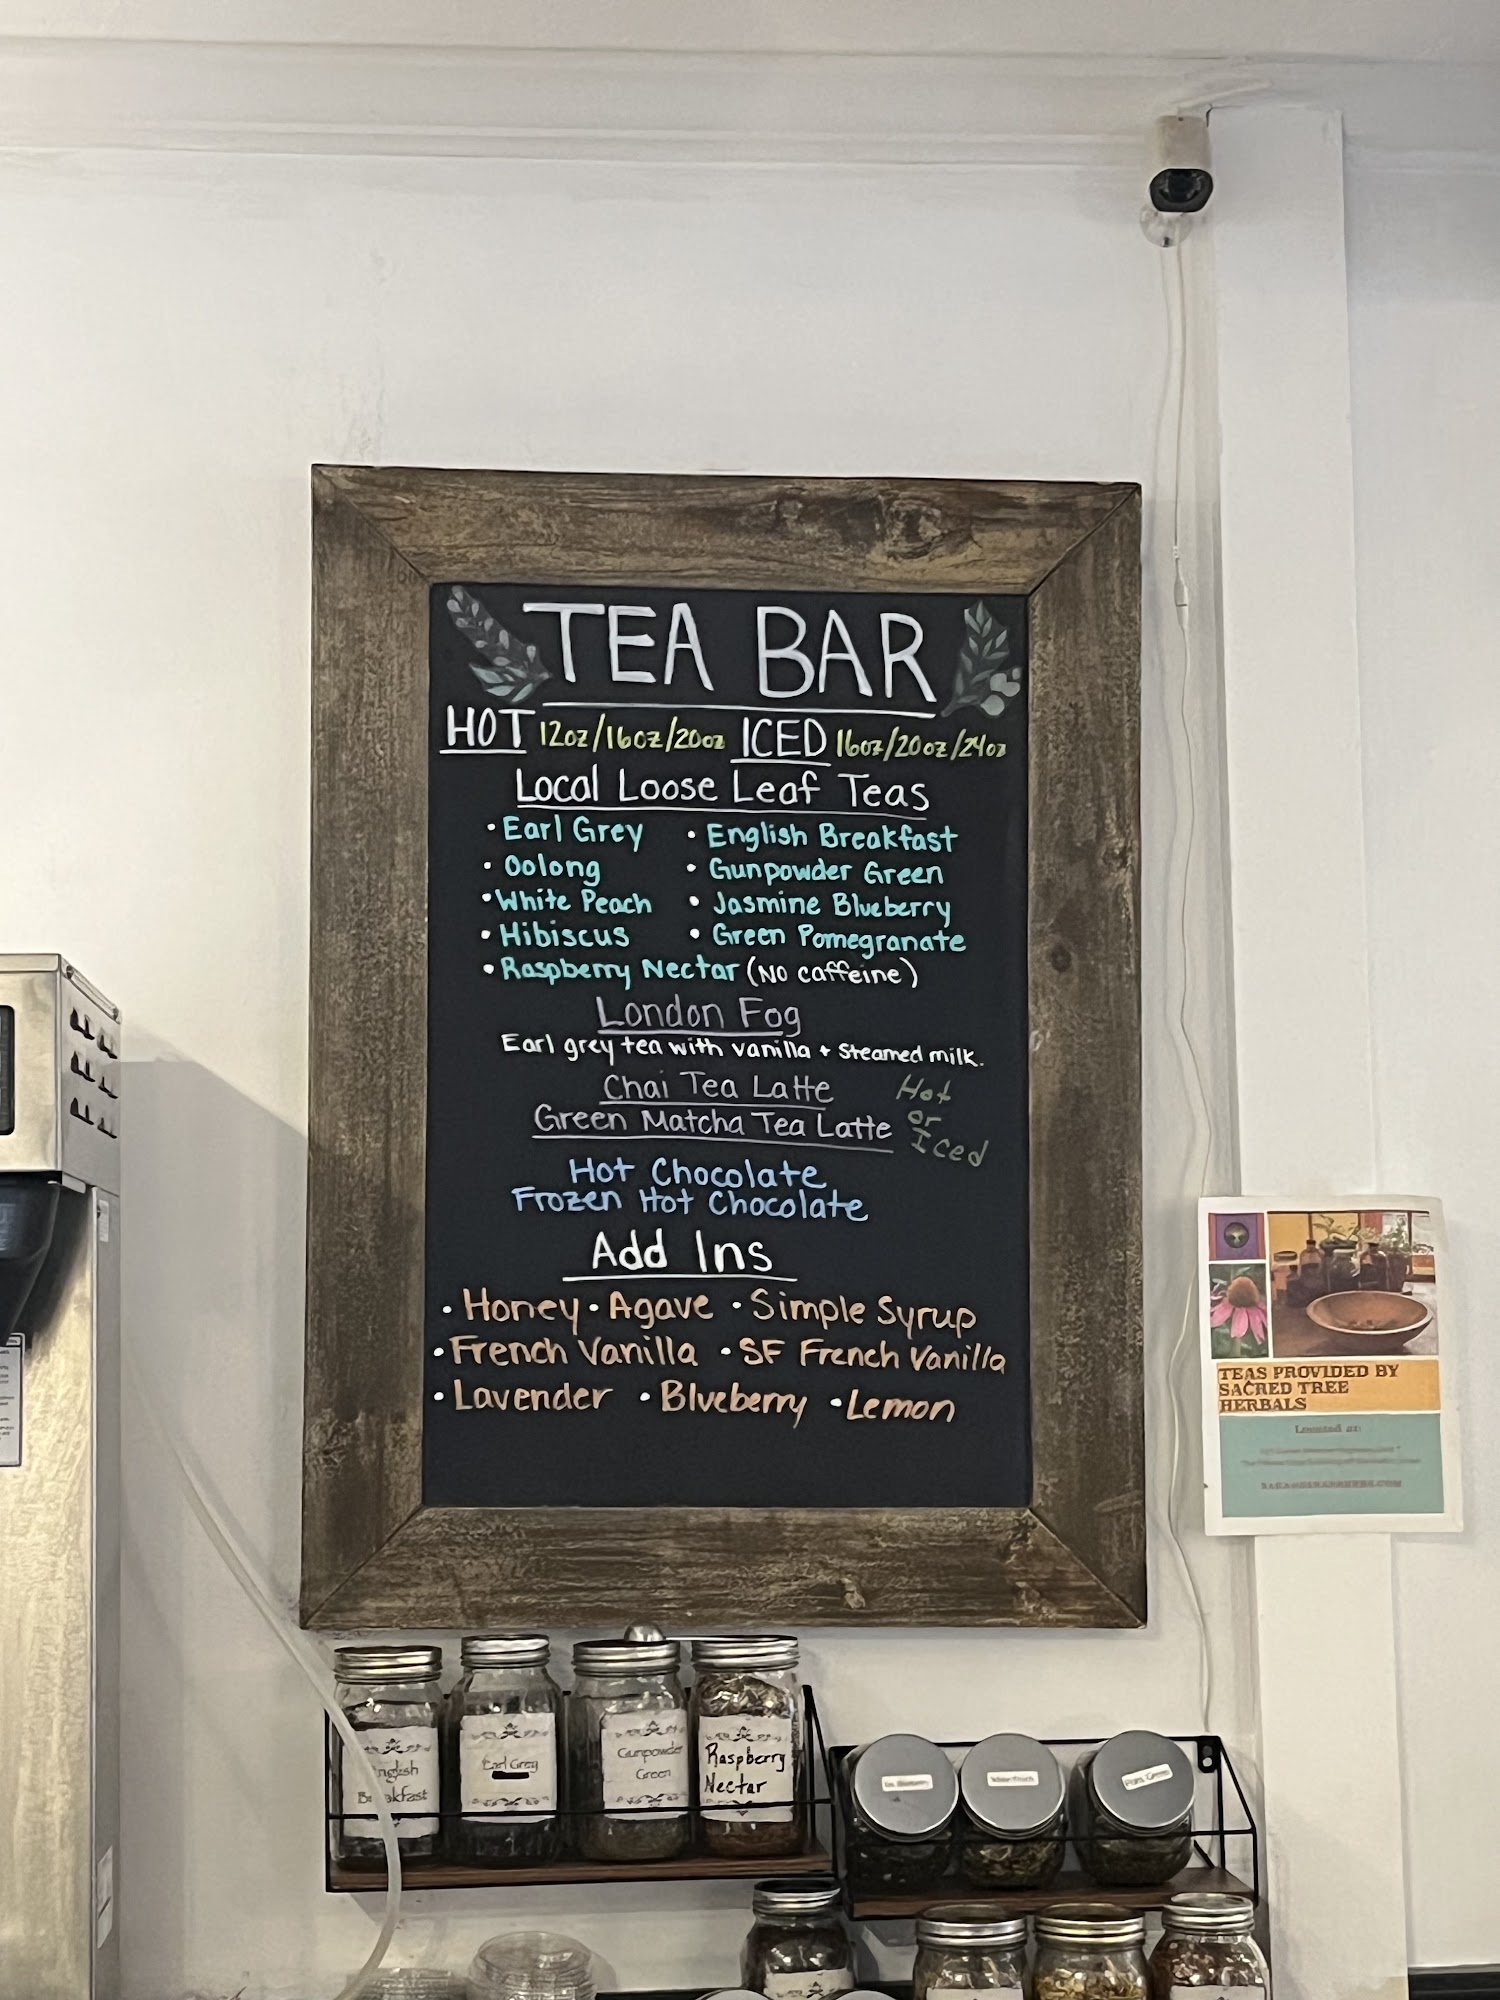 TEA BAR
HOT 12oz/16oz/20oz ICED 16oz/20oz/24oz
Local Loose Leaf Teas
• Earl Grey • English Breakfast
• Oolong • Gunpowder Green
• White Peach • Jasmine Blueberry
• Hibiscus • Green Pomegranate
• Raspberry Nectar (No caffeine)
London Fog
Earl grey tea with vanilla + steamed milk.
Chai Tea Latte
Green Matcha Tea Latte
Hot
or
Iced
Hot Chocolate
Frozen Hot Chocolate
Add Ins
• Honey • Agave • Simple Syrup
• French Vanilla • SF French Vanilla
• Lavender • Blueberry • Lemon
TEAS PROVIDED BY
SACRED TREE
HERBALS
Located at:
English
Breakfast
Earl Grey
Gunpowder
Green
Raspberry
Nectar